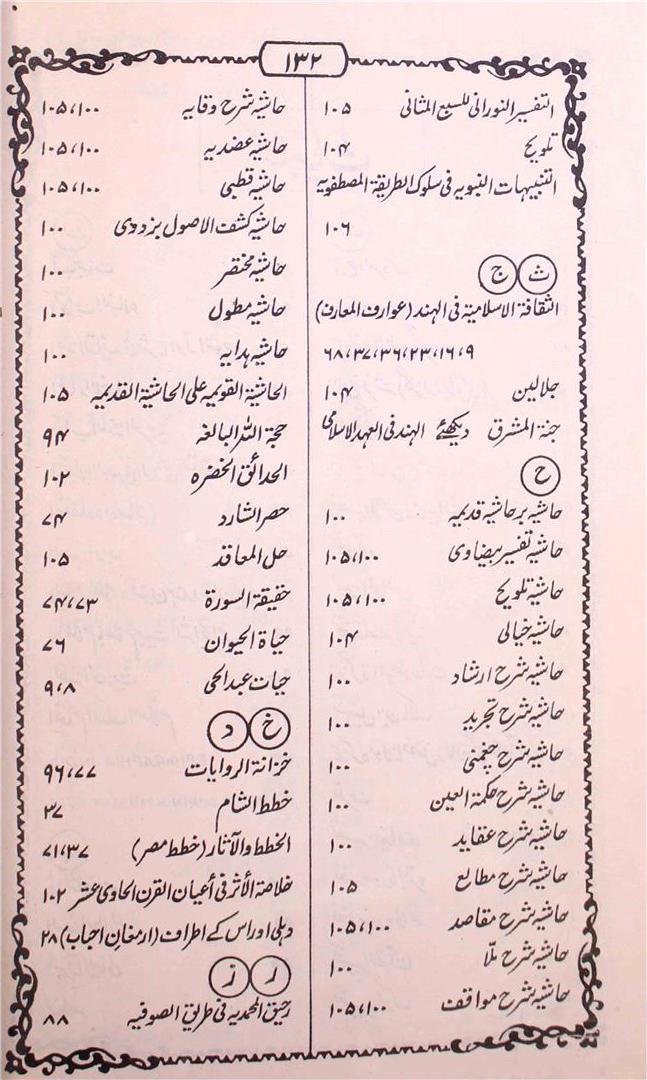 ۱۳۲
التفسیر النورانی للسبع المثانی ۱۰۵
تلویح ۱۰۴
التنبیہات النبویہ فی سلوک الطریقۃ المصطفویہ
۱۰۶
ث ج
الثقافۃ الاسلامیۃ فی الہند (عوارف المعارف)
۹، ۱۶، ۲۳، ۳۶، ۳۷، ۶۸
جلالین ۱۰۴
جنۃ المشرق دیکھئے الہند فی العہد الاسلامی
ح
حاشیہ بر حاشیہ قدیمہ ۱۰۰
حاشیہ تفسیر بیضاوی ۱۰۰، ۱۰۵
حاشیہ تلویح ۱۰۰، ۱۰۵
حاشیہ خیالی ۱۰۴
حاشیہ شرح ارشاد ۱۰۰
حاشیہ شرح تجرید ۱۰۰
حاشیہ شرح چغمنی ۱۰۰
حاشیہ شرح حکمۃ العین ۱۰۰
حاشیہ شرح عقاید ۱۰۰
حاشیہ شرح مطالع ۱۰۵
حاشیہ شرح مقاصد ۱۰۰، ۱۰۵
حاشیہ شرح ملّا ۱۰۰
حاشیہ شرح مواقف ۱۰۰، ۱۰۵
حاشیہ شرح وقایہ ۱۰۰، ۱۰۵
حاشیہ عضدیہ ۱۰۰، ۱۰۵
حاشیہ قطبی ۱۰۰، ۱۰۵
حاشیہ کشف الاصول بزدوی ۱۰۰
حاشیہ مختصر ۱۰۰
حاشیہ مطول ۱۰۰
حاشیہ ہدایہ ۱۰۰
الحاشیۃ القویمہ علی الحاشیۃ القدیمہ ۱۰۵
حجۃ اللہ البالغہ ۹۴
الحدائق الخضرہ ۱۰۲
حصر الشارد ۷۴
حل المعاقد ۱۰۵
حقیقۃ السورۃ ۷۳، ۷۴
حیاۃ الحیوان ۷۶
حیات عبدالحی ۸، ۹
خ د
خزانۃ الروایات ۷۷، ۹۶
خطط الشام ۲۷
الخطط والآثار (خطط مصر) ۳۷، ۷۱
خلاصۃ الأثر فی أعیان القرن الحادی عشر ۱۰۲
دہلی اور اس کے اطراف (ارمغان احباب) ۲۸
ر ز
رحیق المحمدیہ فی طریق الصوفیہ ۸۸